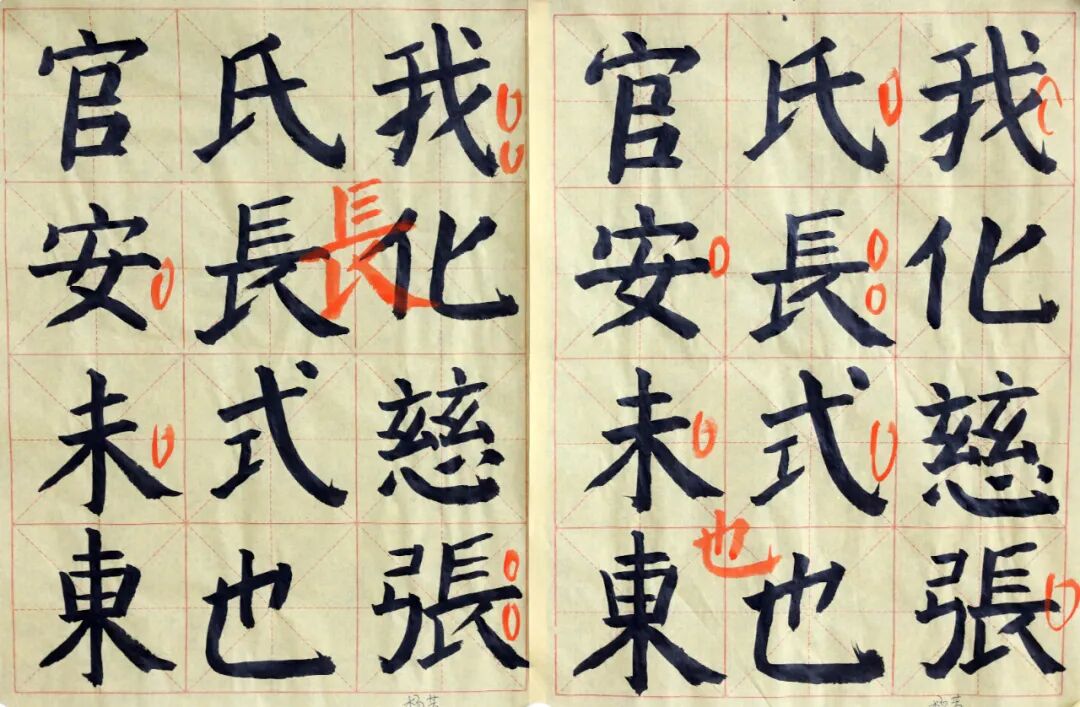 我化慈張
氏長式也
官安未東
也
我化慈張
氏長式也
官安未東
長